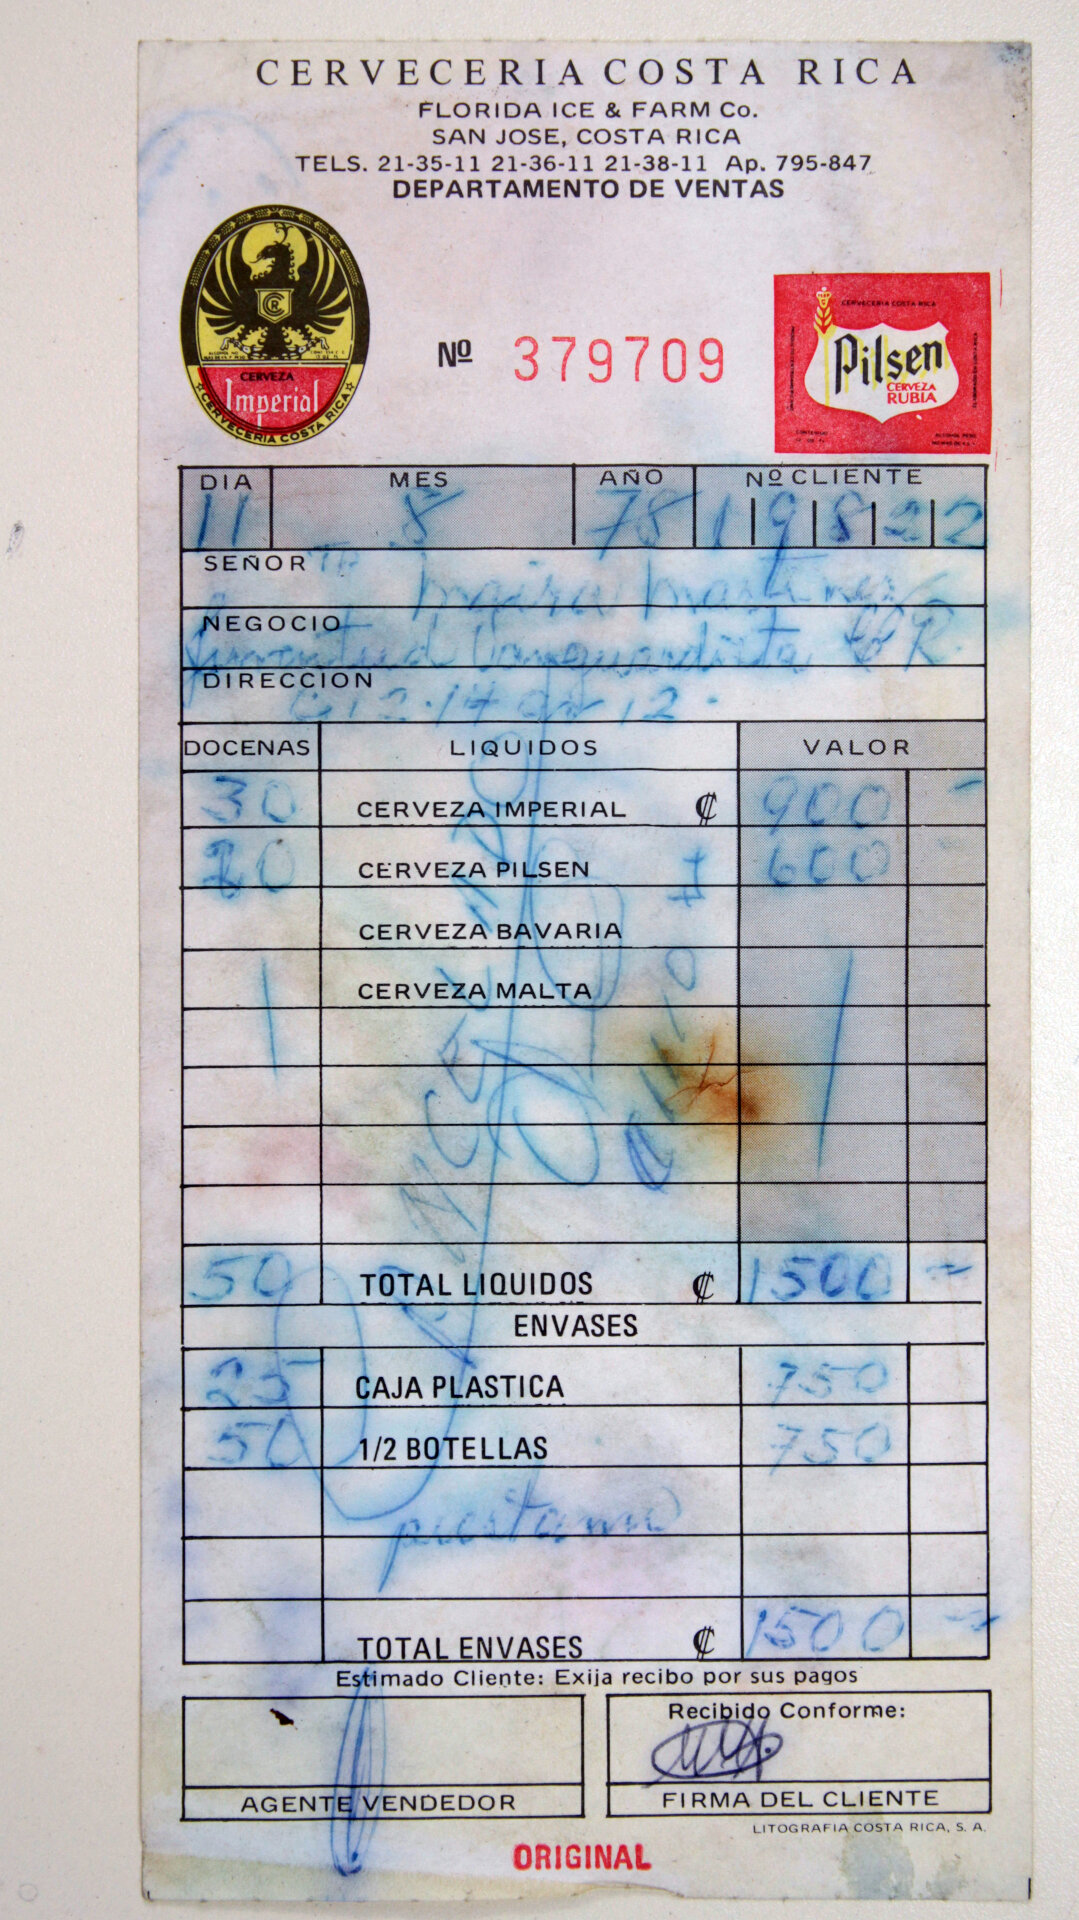 CERVECERIA COSTA RICA
FLORIDA ICE & FARM Co.
SAN JOSE, COSTA RICA
TELS. 21-35-11 21-36-11 21-38-11 Ap. 795-847
DEPARTAMENTO DE VENTAS
CERVEZA
Imperial
CERVECERIA COSTA RICA
Nº 379709
CERVECERIA COSTA RICA
Pilsen
CERVEZA
RUBIA
DIA MES AÑO Nº CLIENTE
11 8 78 1 9 8 2 2
SEÑOR
NEGOCIO
DIRECCION
DOCENAS LIQUIDOS VALOR
30 CERVEZA IMPERIAL ₡ 900 -
20 CERVEZA PILSEN 600
CERVEZA BAVARIA
CERVEZA MALTA
50 TOTAL LIQUIDOS ₡ 1500 -
ENVASES
25 CAJA PLASTICA 750
50 1/2 BOTELLAS 750
TOTAL ENVASES ₡ 1500 -
Estimado Cliente: Exija recibo por sus pagos
Recibido Conforme:
AGENTE VENDEDOR FIRMA DEL CLIENTE
LITOGRAFIA COSTA RICA, S. A.
ORIGINAL